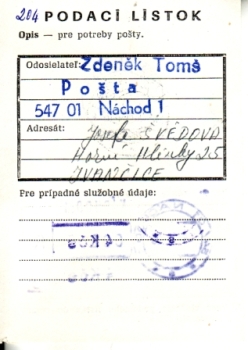 204 PODACÍ LÍSTOK
Opis — pre potreby pošty.
Odosielateľ: Zdeněk Toms
Pošta
547 01 Náchod 1
Adresát: ŠVÉDOVÁ
Horní Hlinky 25
IVANČICE
Pre prípadné služobné údaje: